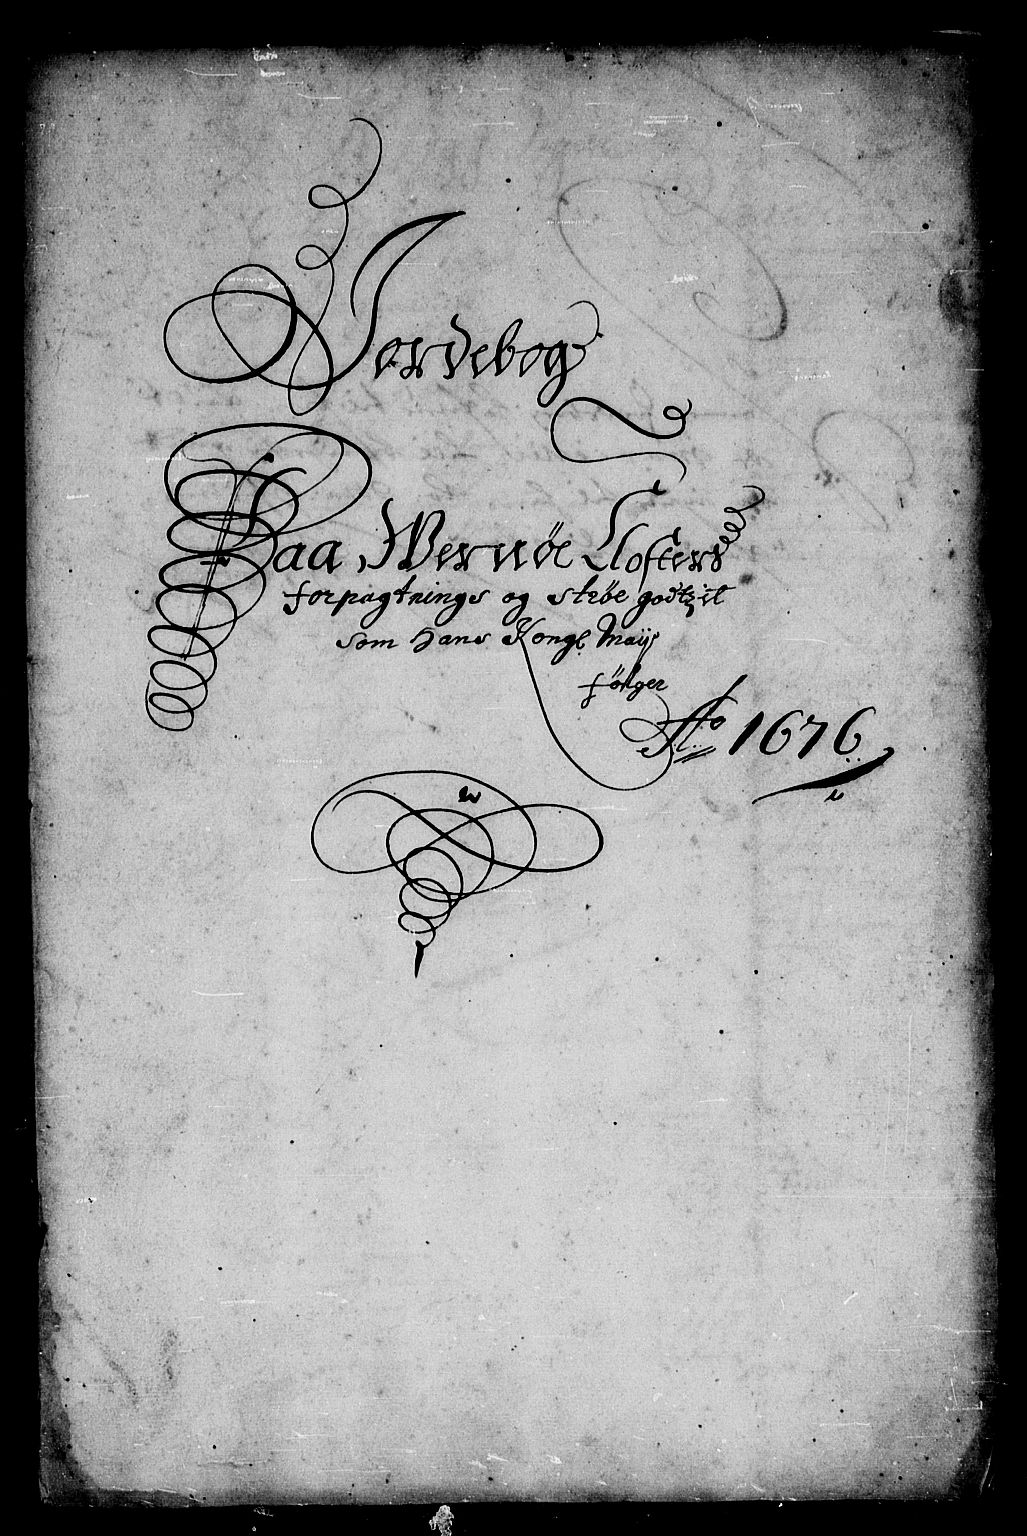 Jordebog
Paa Wernøe Closters
forpagtnings og ströe godtzit
som Hans Kongl Maij
fölger
Ao 1676